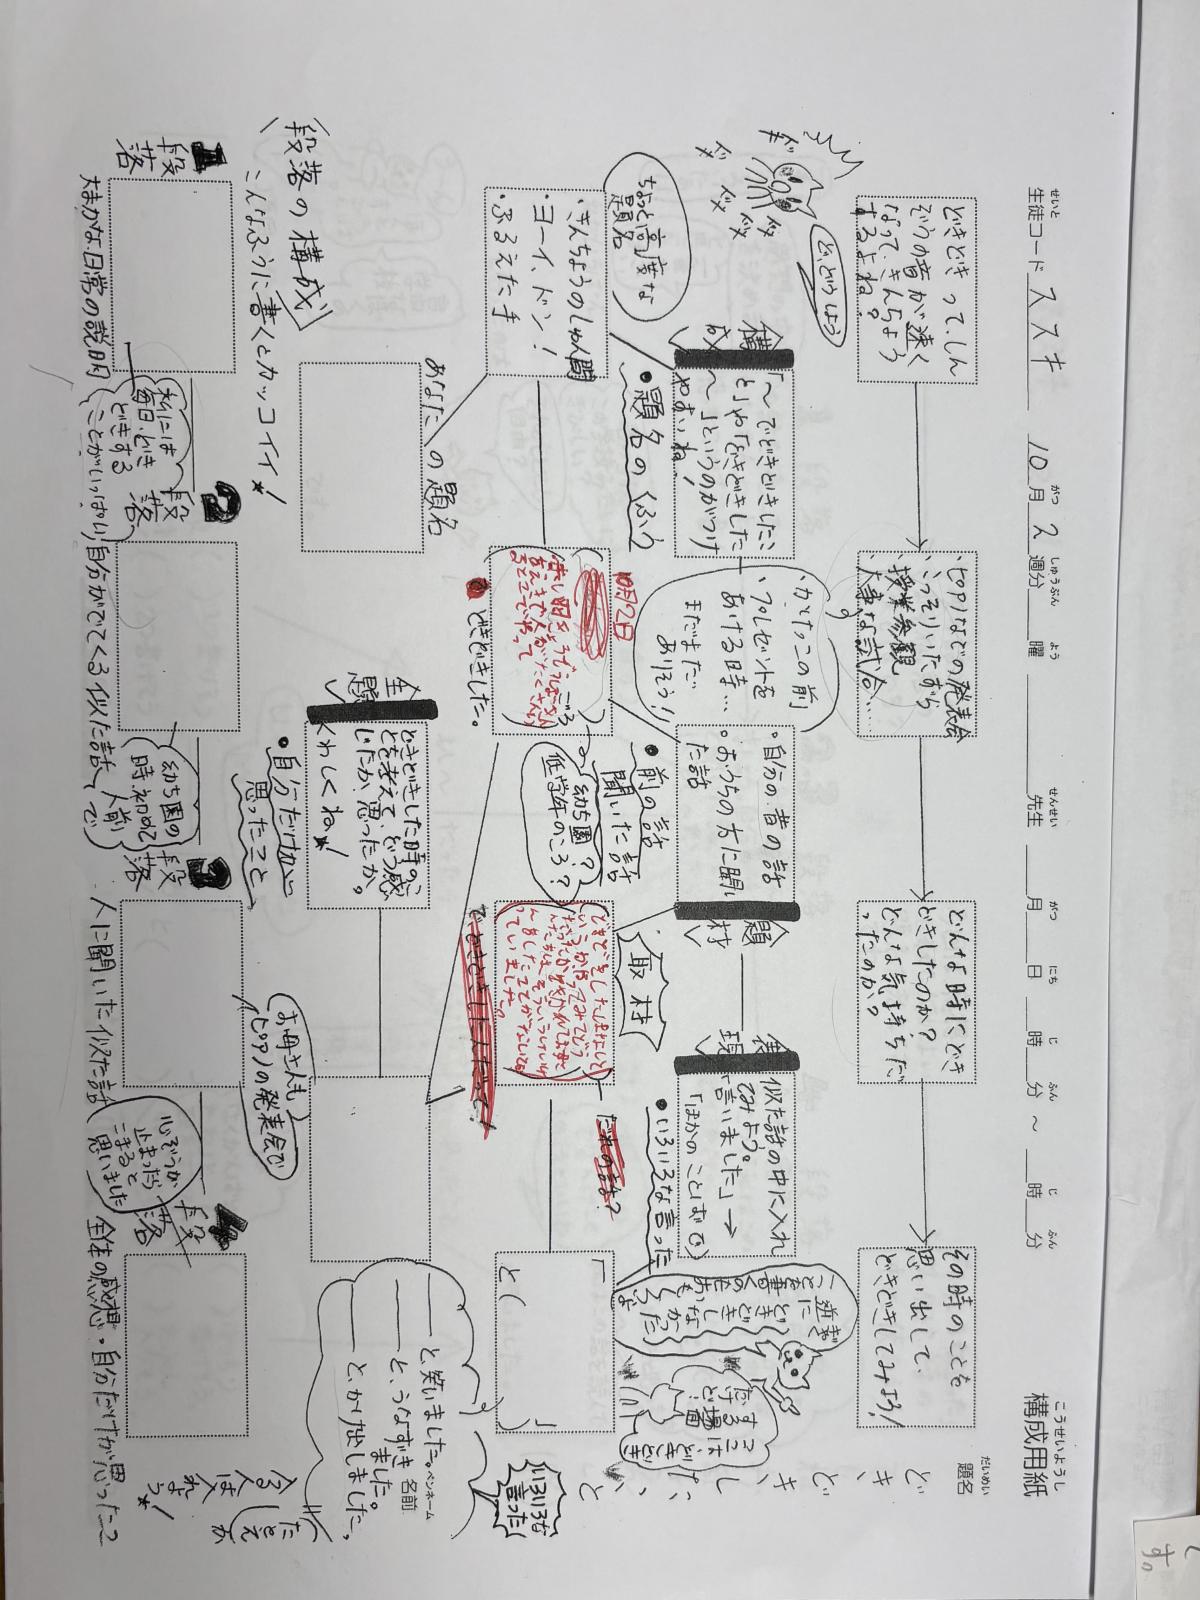 せいと
生徒コード ススキ 10月2週分 曜 先生 月 日 時 分 ～ 時 分
がつ しゅうぶん よう せんせい がつ にち じ ふん じ ふん
こうせいようし
構成用紙
だいめい
題名
どき、どき、したこと
どきどきって、しん
ぞうの音が速く
なって、きんちょう
するよね?
ど、どうしよう
・ピアノなどの発表会
・いっそりいたずら
・授業参観
・大事な試合…
どんな時にどき
どきしたのか?
どんな気持ちだ
ったのか?
その時のことを
思い出して、
どきどきしてみよう!
構成
「～でどきどきしたこ
と」や「どきどきした
～」というのがつけ
やすいね!
・かけっこの前
・プレゼントを
あげる時…
まだまだ
ありそう!!
・自分の昔の話
・おうちの方に聞い
た話
題材
表現
似た話の中に入れ
てみよう。
「言いました」→
「ほかのことばで」
ちょっと高度な
題名
●題名のくふう
・きんちょうのしゅん間
・ヨーイ、ドン!
・ふるえた手
10月2日
●どきどきしました。
●前の話
聞いた話
幼ち園?
低学年のころ?
取材
だれの話?
でどきどきしたんだって!
●いろいろな言った
「
」
と( )
いろいろな
言った
と、笑いました。
と、うなずき
ました。
と、かけ出しました。
ペンネーム
名前
あなたの題名
主題
どきどきした時のこ
とを考えて、どう感
じたか、思ったか。
くわしくね★!
●自分だけが
思ったこと
お母さんも
ピアノの発表会で
段落の構成
こんなふうに書くとカッコイイ★!
1段落
大まかな日常の説明
私には
毎日、どき
どきする
ことがいっぱい
2段落
自分がでてくる似た話
幼ち園の
時、初めて
人前
で、
3段落
人に聞いた似た話
心ぞうが
止まったら
こまると
思いました
4段落
全体の感想・自分だけが思ったこと
たとえが
入る人は入れよう★!